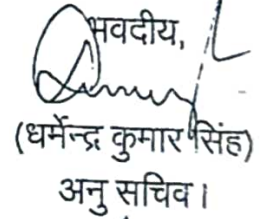 भवदीय,
(धर्मेन्द्र कुमार सिंह)
अनु सचिव।